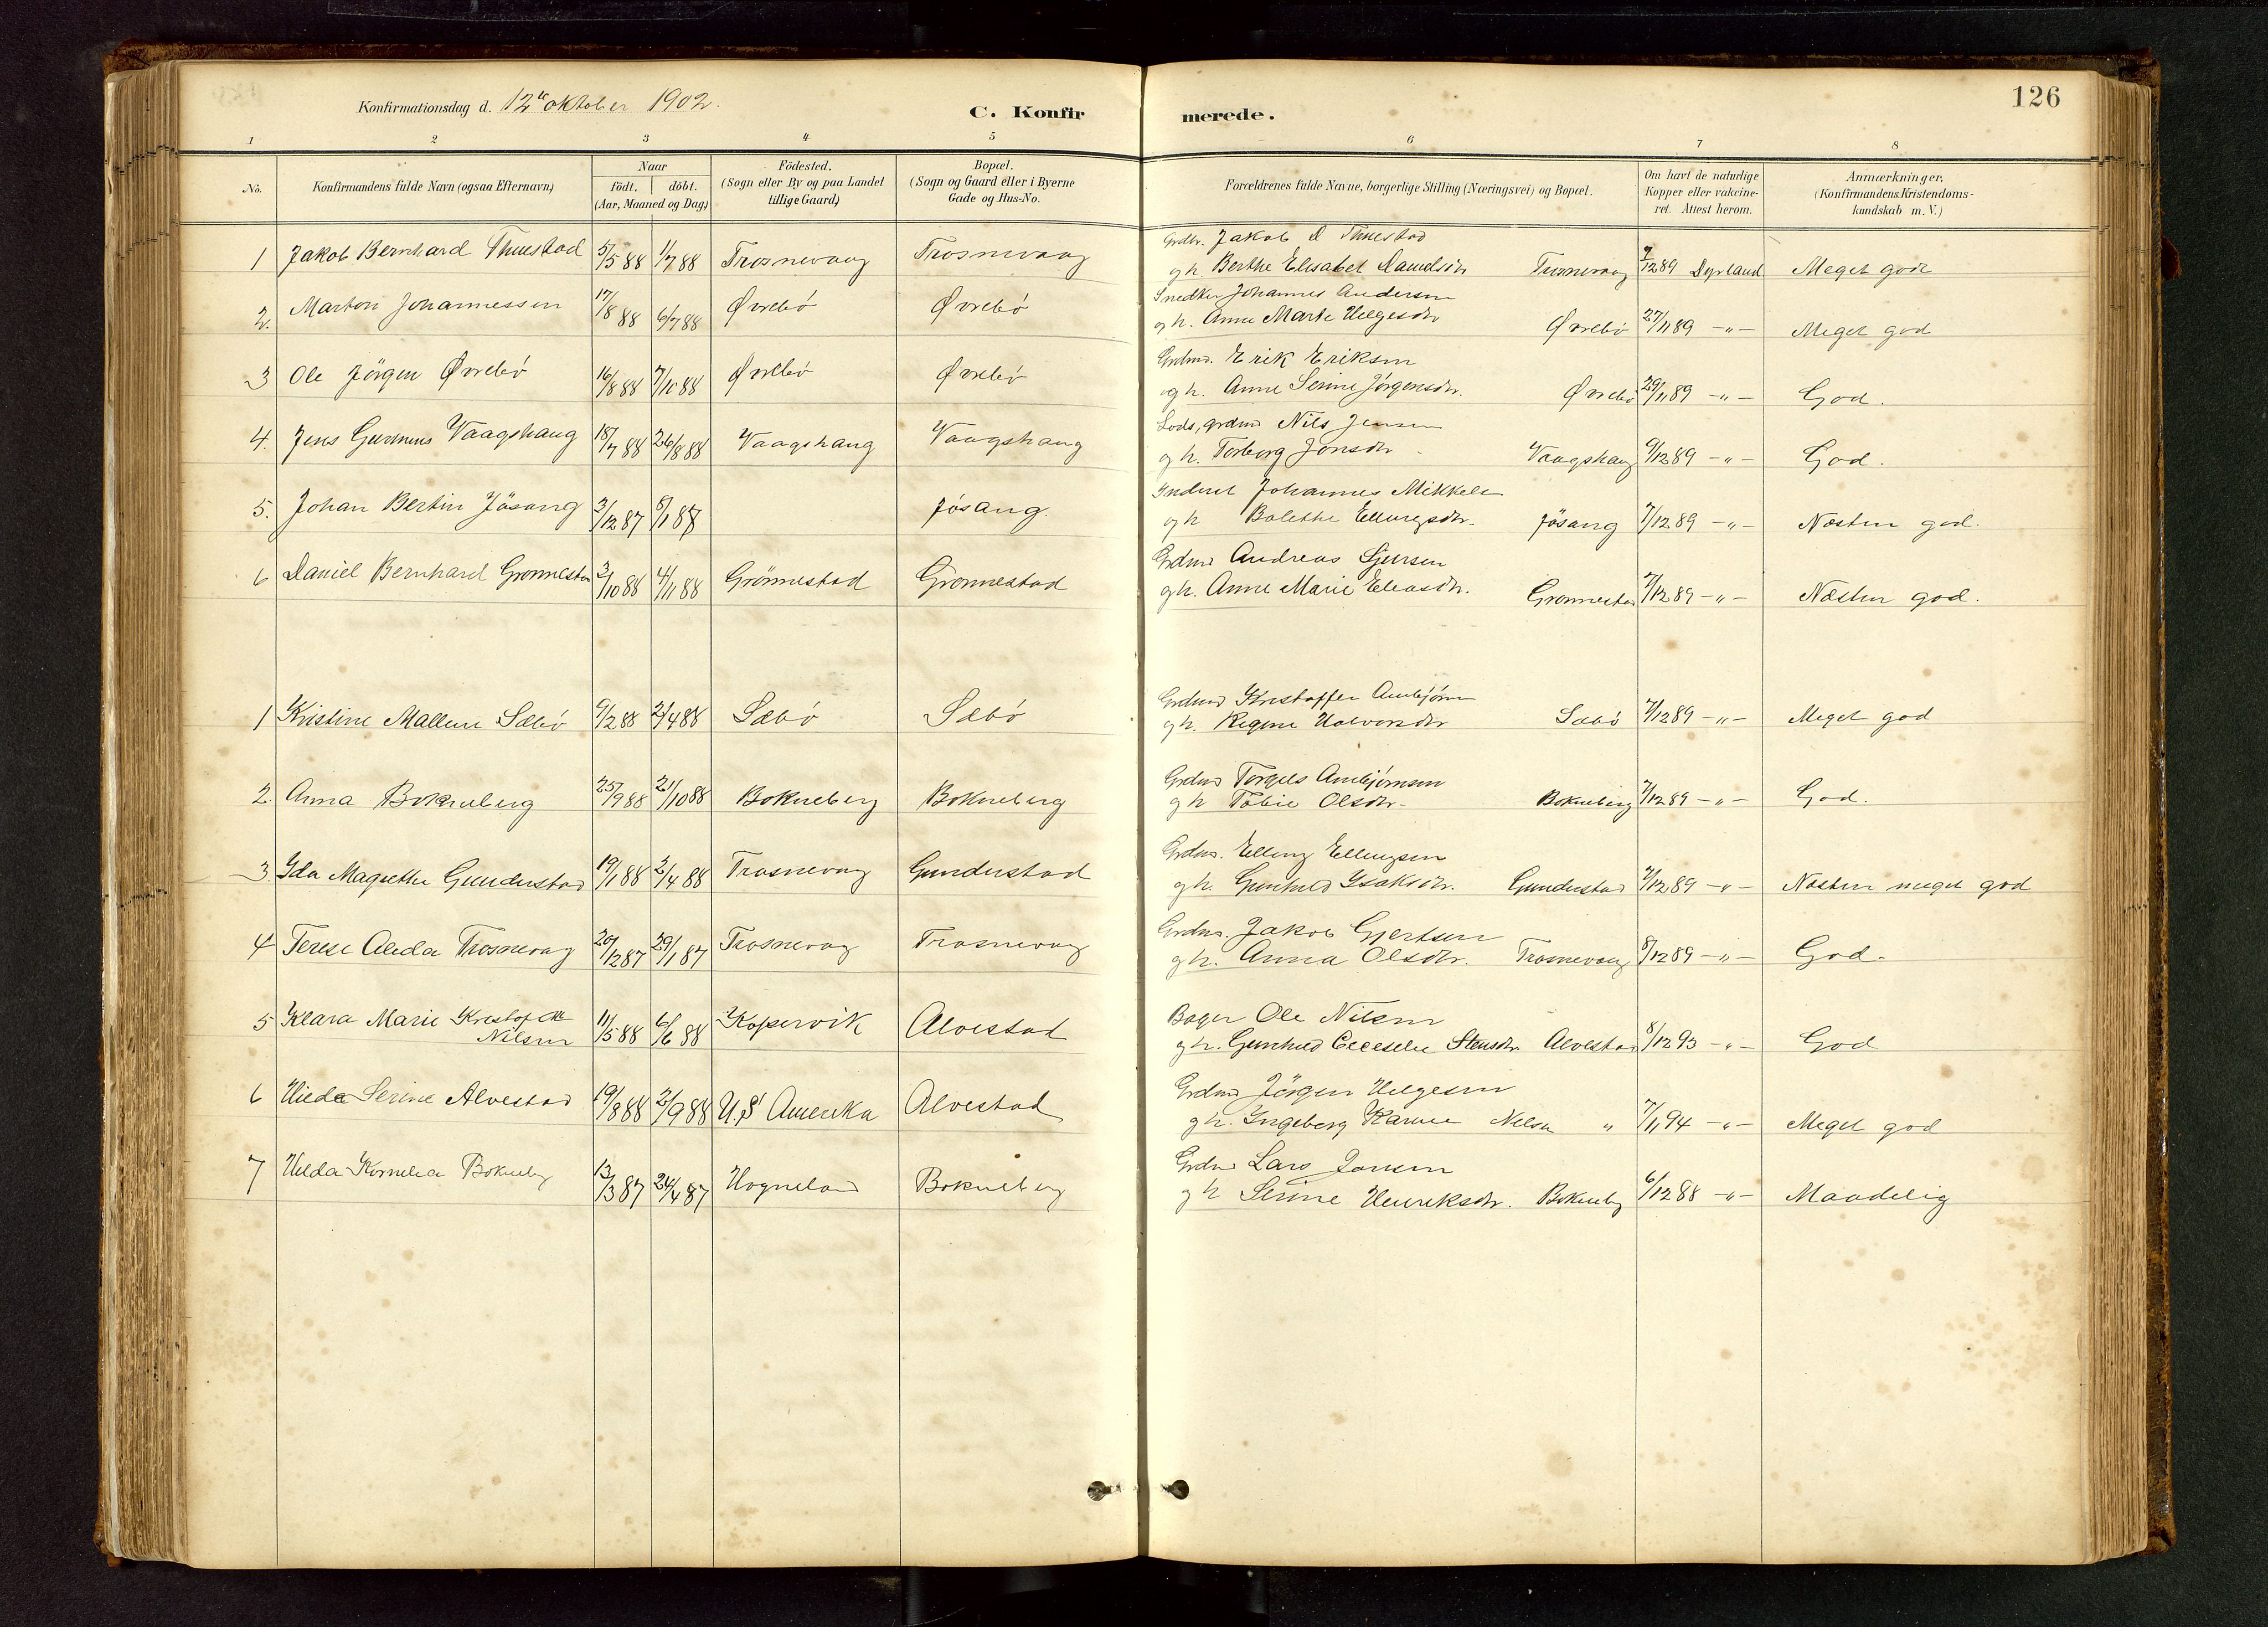 126
Konfirmationsdag d. 12te oktober 1902.
C. Konfirmerede.
1 2 3 4 5 6 7 8
No. Konfirmandens fulde Navn (ogsaa Efternavn) Naar födt. döbt. (Aar, Maaned og Dag) Födested. (Sogn eller By og paa Landet tillige Gaard) Bopæl. (Sogn og Gaard eller i Byerne Gade og Hus-No. Forældrenes fulde Navne, borgerlige Stilling (Næringsvei) og Bopæl. Om havt de naturlige Kopper eller vakcineret. Attest herom. Anmærkninger, (Konfirmandens Kristendomskundskab m. V.)
Grdbr. Jakob D Thuestad
1 Jakob Bernhard Thuestad 5/5 88 1/7 88 Trosnevaag Trosnevaag og h. Berthe Elisabet Danielsdr Trosnevaag 7/12 89 Dyrland Meget god
Snedker Johannes Andersen
2. Marton Johannessen 17/8 88 6/7 88 Øvrebö Øvrebö og h. Anne Marte Helgesdr Øvrebö 27/11 89 -"- Meget god
Grdmd. Erik Eriksen
3 Ole Jörgen Øvrebö 16/8 88 7/10 88 Øvrebö Øvrebö og h. Anne Serine Jørgensdr. Øvrebö 29/11 89 -"- God.
Lods, grdmd Nils Jensen
4. Jens Gurinius Vaagshaug 18/7 88 26/8 88 Vaagshaug Vaagshaug og h. Torborg Jonsdr Vaagshaug 9/12 89 -"- God.
Inderst Johannes Mikkels
5. Johan Bertin Jösang 3/12 87 8/1 87 Jösang. og h Bolethe Ellingsdr. Jösang 7/12 89 -"- Næsten god.
Grdmd Andreas Sjursen
6 Daniel Bernhard Grønnestad 3/10 88 4/11 88 Grönnestad Grønnestad og h. Anne Marie Eliasdr. Grønnestad 7/12 89 -"- Næsten god.
Grdmd Kristoffer Arnbjörn
1 Kristine Malline Sæbö 9/2 88 2/4 88 Sæbö Sæbö og h. Regine Halvorsdr Sæbö 7/12 89 -"- Meget god
Grdmd Torgils Arnbjörnsen
2. Anna Bokneberg 25/9 88 21/10 88 Bokneberg Bokneberg og h Tobie Olsdr. Bokneberg 7/12 89 -"- God.
Grdmd. Elling Ellingsen
3. Ida Magrethe Gunderstad 19/1 88 2/4 88 Trosnevag Gunderstad og h. Gunhild Isaksdr. Gunderstad 7/12 89 -"- Næsten meget god
Grdmd. Jakob Gjertsen
4 Terese Alida Trosnevag 20/12 87 29/1 87 Trosnevag Trosnevag og h. Anna Olsdr. Trosnevaag 8/12 89 -"- God.
Bager Ole Nilsen
5 Klara Marie Kristof Nilsen 11/5 88 6/6 88 Kopervik Alvestad og h. Gunhild Stensdr. Alvestad 8/12 93 -"- God
Grdmd Jörgen Helgesen
6 Hilda Serine Alvestad 19/8 88 2/9 88 U,S Amerika Alvestad og h. Ingeborg Karine Nilsen " 7/11 94 -"- Meget god
Grdmd Lars Jansen
7 Hilda Kornelia Bokneberg 13/3 87 24/4 87 Hogneland Bokneberg og h Serine Henriksdr. Bokneberg 6/12 88 -"- Maadelig